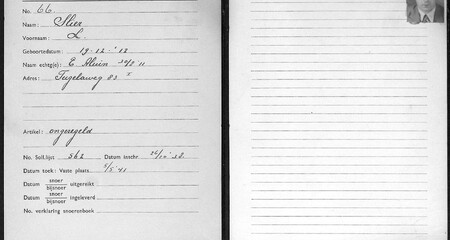 No. 66.
Naam: Sleer
Voornaam: L.
Geboortedatum: 19-12-'12
Naam echtg(e): E
Adres: Tugelaweg 83
Artikel: ongeregeld
No. Soll.lijst 362 Datum toezhr.
Datum toek: Vaste plaats 1/5 '41
Datum snoer bijsnoer uitgereikt
Datum snoer bijsnoer ingeleverd
No. verklaring snoerenboek